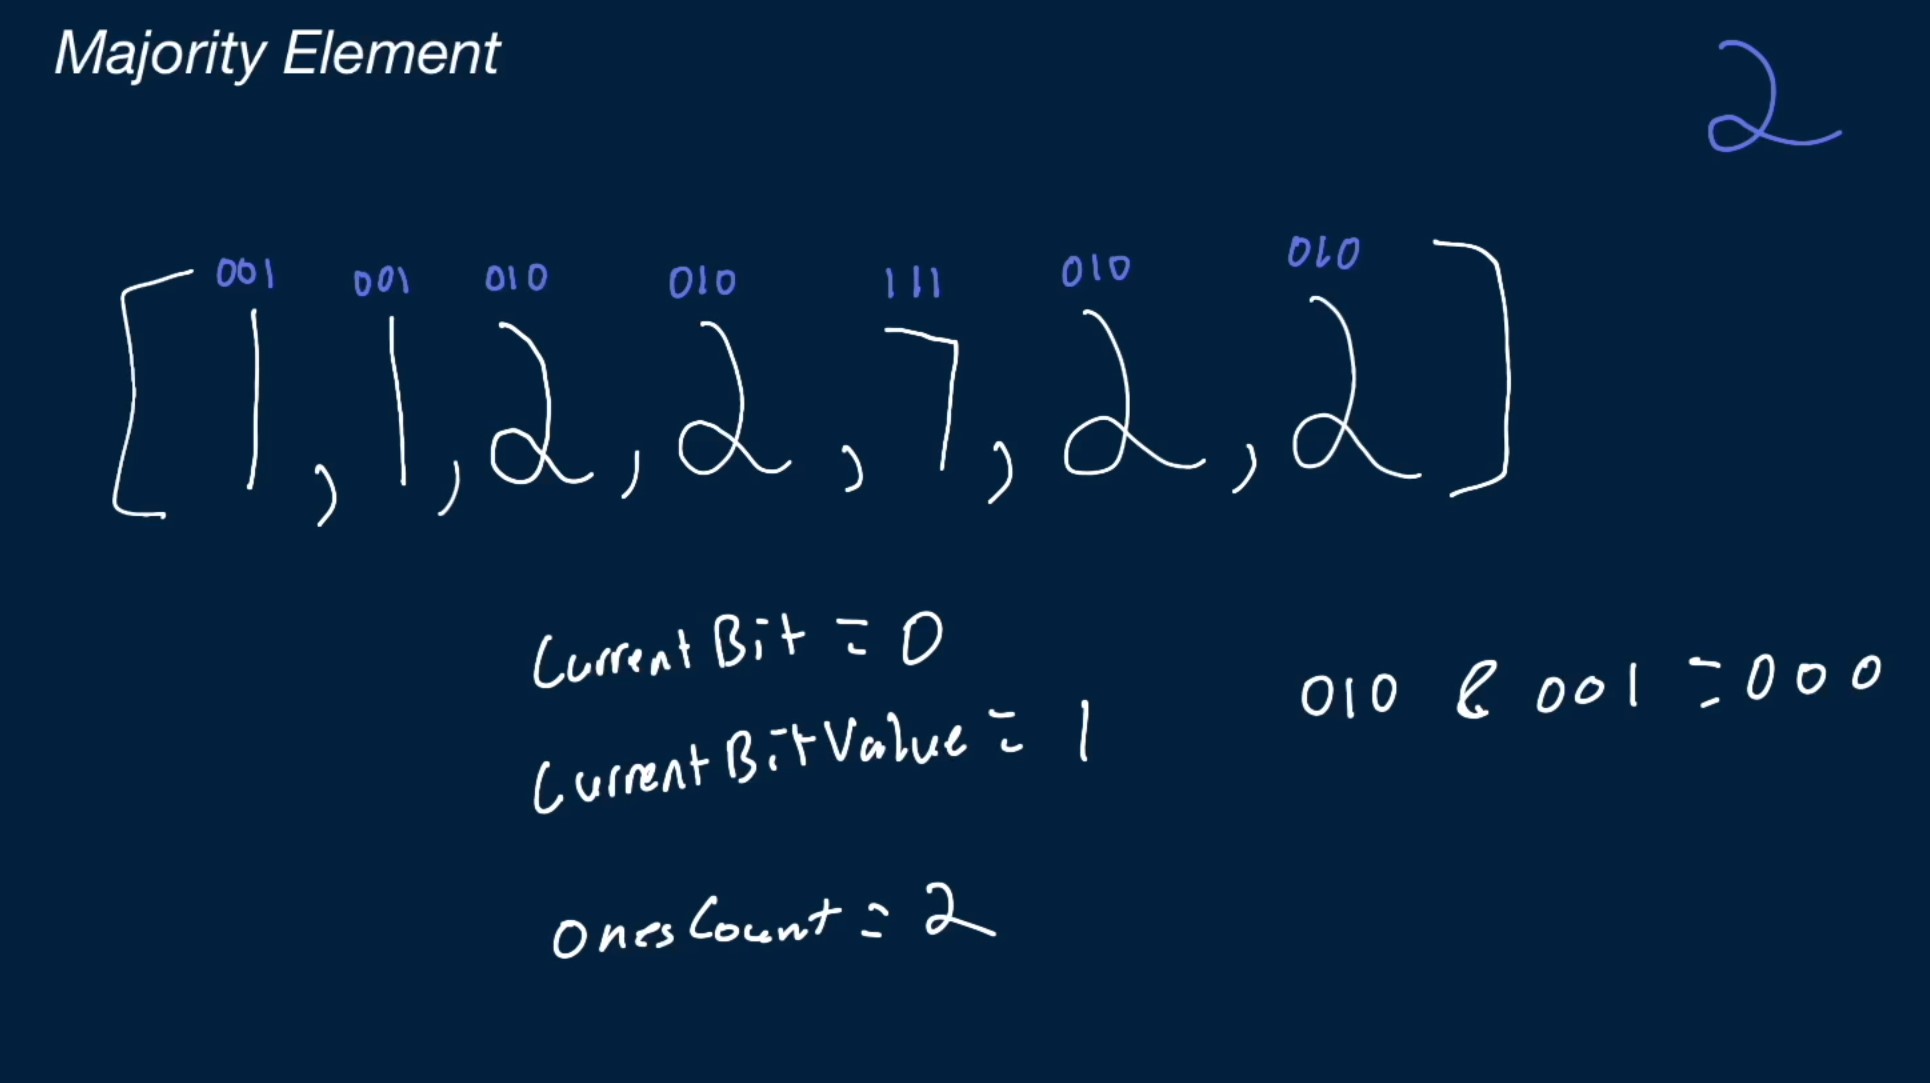 Majority Element
2
001 001 010 010 111 010 010
[1, 1, 2, 2, 7, 2, 2]
CurrentBit = 0
010 & 001 = 000
CurrentBitValue = 1
onesCount = 2